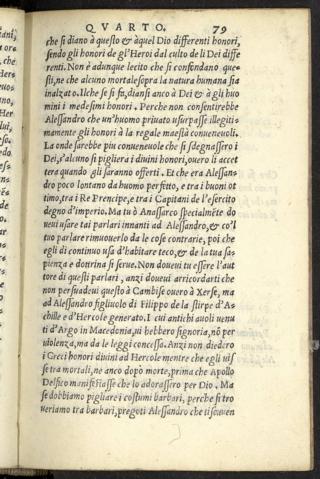 QVARTO. 79
che si diano à questo & àquel Dio differenti honori,
sendo gli honori de gl'Heroi dal culto de li Dei diffe
renti. Non è adunque lecito che si confondano que-
sti, ne che alcuno mortale sopra la natura humana sia
inalzato. Ilche se si fa, diansi anco à Dei & à gli huo
mini i medesimi honori. Perche non consentirebbe
Alessandro che un'huomo priuato usurpasse illegiti
mamente gli honori à la regale maestà conueneuoli.
La onde sarebbe piu conueneuole che si sdegnassero i
Dei, s'alcuno si pigliera i diuini honori, ouero li accet
tera quando gli saranno offerti. Et che era Alessan-
dro poco lontano da huomo perfetto, e tra i buoni ot
timo, tra i Re Prencipe, e tra i Capitani de l'esercito
degno d'imperio. Ma tu ò Anassarco specialmēte do
ueui usare tai parlari innanti ad Alessandro, & co'l
tuo parlare rimuouerlo da le cose contrarie, poi che
egli di continuo usa d'habitare teco, & de la tua sa-
pienza e dotrina si serue. Non doueui tu essere l'aut
tore di questi parlari, anzi doueui arricordarti che
non persuadeui questo à Cambise ouero à Xerse, ma
ad Alessandro figliuolo di Filippo de la stirpe d'A-
chille e d'Hercole generato. I cui antichi auoli uenu
ti d'Argo in Macedonia, ui hebbero signoria, nō per
uiolenza, ma da le leggi concessa. Anzi non diedero
i Greci honori diuini ad Hercole mentre che egli uis
se tra mortali, ne anco dopò morte, prima che Apollo
Delfico manifestasse che lo adorassero per Dio. Ma
se dobbiamo pigliare i costumi barbari, perche si tro
ueriamo tra barbari, pregoti Alessandro che ti souen